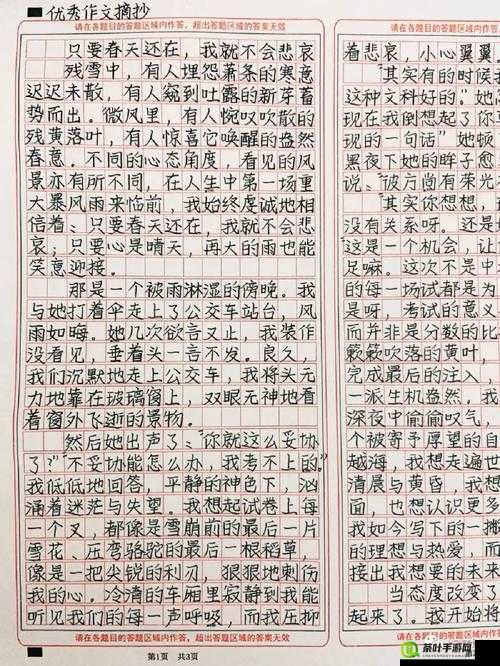 优秀作文摘抄
请在各题目的答题区域内作答，超出答题区域的答案无效
只要春天还在，我就不会悲哀
残雪中，有人埋怨萧条的寒意
迟迟未散，有人窥到吐露的新芽蓄
势而出。微风里，有人惋叹吹散的
残黄落叶，有人惊喜它唤醒的盎然
春意。不同的心态角度，看见的风
景亦有所不同，在人生中第一场重
大暴风雨来临前，我始终虔诚地相
信着：只要春天还在，我就不会悲
哀；只要心是晴天，再大的雨也能
笑意迎接。
那是一个被雨淋湿的傍晚。我
与她打着伞走上了公交车站台，风
雨如晦。她几次欲言又止，我装作
没看见，垂着头一言不发。良久，
我们沉默地走上公交车，我将头无
力地靠在玻璃窗上，双眼无神地看
着窗外飞逝的景物。
然后她出声了：“你就这么妥协
了？”“不妥协能怎么办，我考不上的。”
我低低地回答，平静的神色下，汹
涌着迷茫与失望。我想起试卷上每
一个叉，都像是雪崩前的最后一片
雪花、压弯骆驼的最后一根稻草，
像是一把尖锐的利刃，狠狠地刺伤
我的心。冷清的车厢里寂静到我能
听见我们的每一声呼吸，而我压抑
请在各题目的答题区域内作答，超出答题区域的答案无效
第1页 共3页
请在各题目的答题区域
着悲哀，小心翼翼
“其实有的时候
这种文科好的。”她
现在我倒想起了你
现的一句话”她顿
黑夜下她的眸子愈
说：“彼方尚有荣光
“其实你想想，
没有关系呀。还是
这是一个机会，让
足嘛。这次不是中
的每一场试都是为
是呀，考试的意义
而并非是分数的比
簌簌吹落的黄叶，
完成最后的注入，
一派生机盎然。我
深夜中偷偷叹气，
个被寄予厚望的自
越海，我想走遍世
清晨与黄昏，我想
面，也想认识更多
我如今写下的一撇
的理想与热爱，而
接出我想要的未来
当态度改变了
起来了。我开始将
请在各题目的答题区域
茶叶手游网